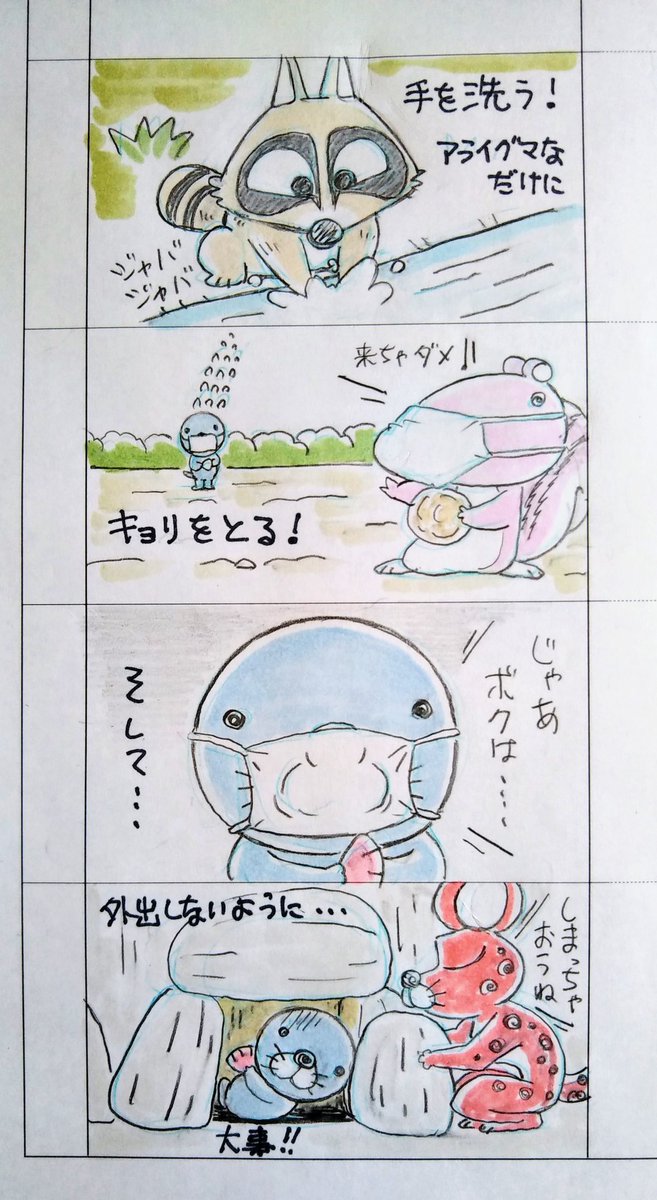 手を洗う!
アライグマな
だけに
ジャバ
ジャバ
来ちゃダメ!!
キョリをとる!
じゃあ
ボクは…
そして…
外出しないように…
しまっちゃ
おうね
大事!!